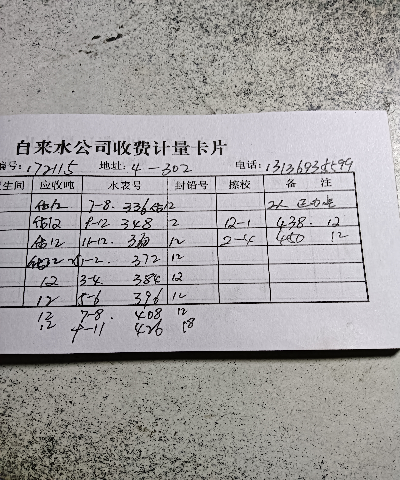 自来水公司收费计量卡片
编号:172115 地址:4-302 电话:13136935599
生间 应收吨 水表号 封铅号 擦校 备注
估12 7-8. 336 估12
估12 9-12 348 2 12-1 438. 12
估12 11-12 360 12 2-4 450 12
1-2. 372 12
12 3-4. 384 12
12 5-6 396 12
12 7-8 408 12
12 9-11 426 18